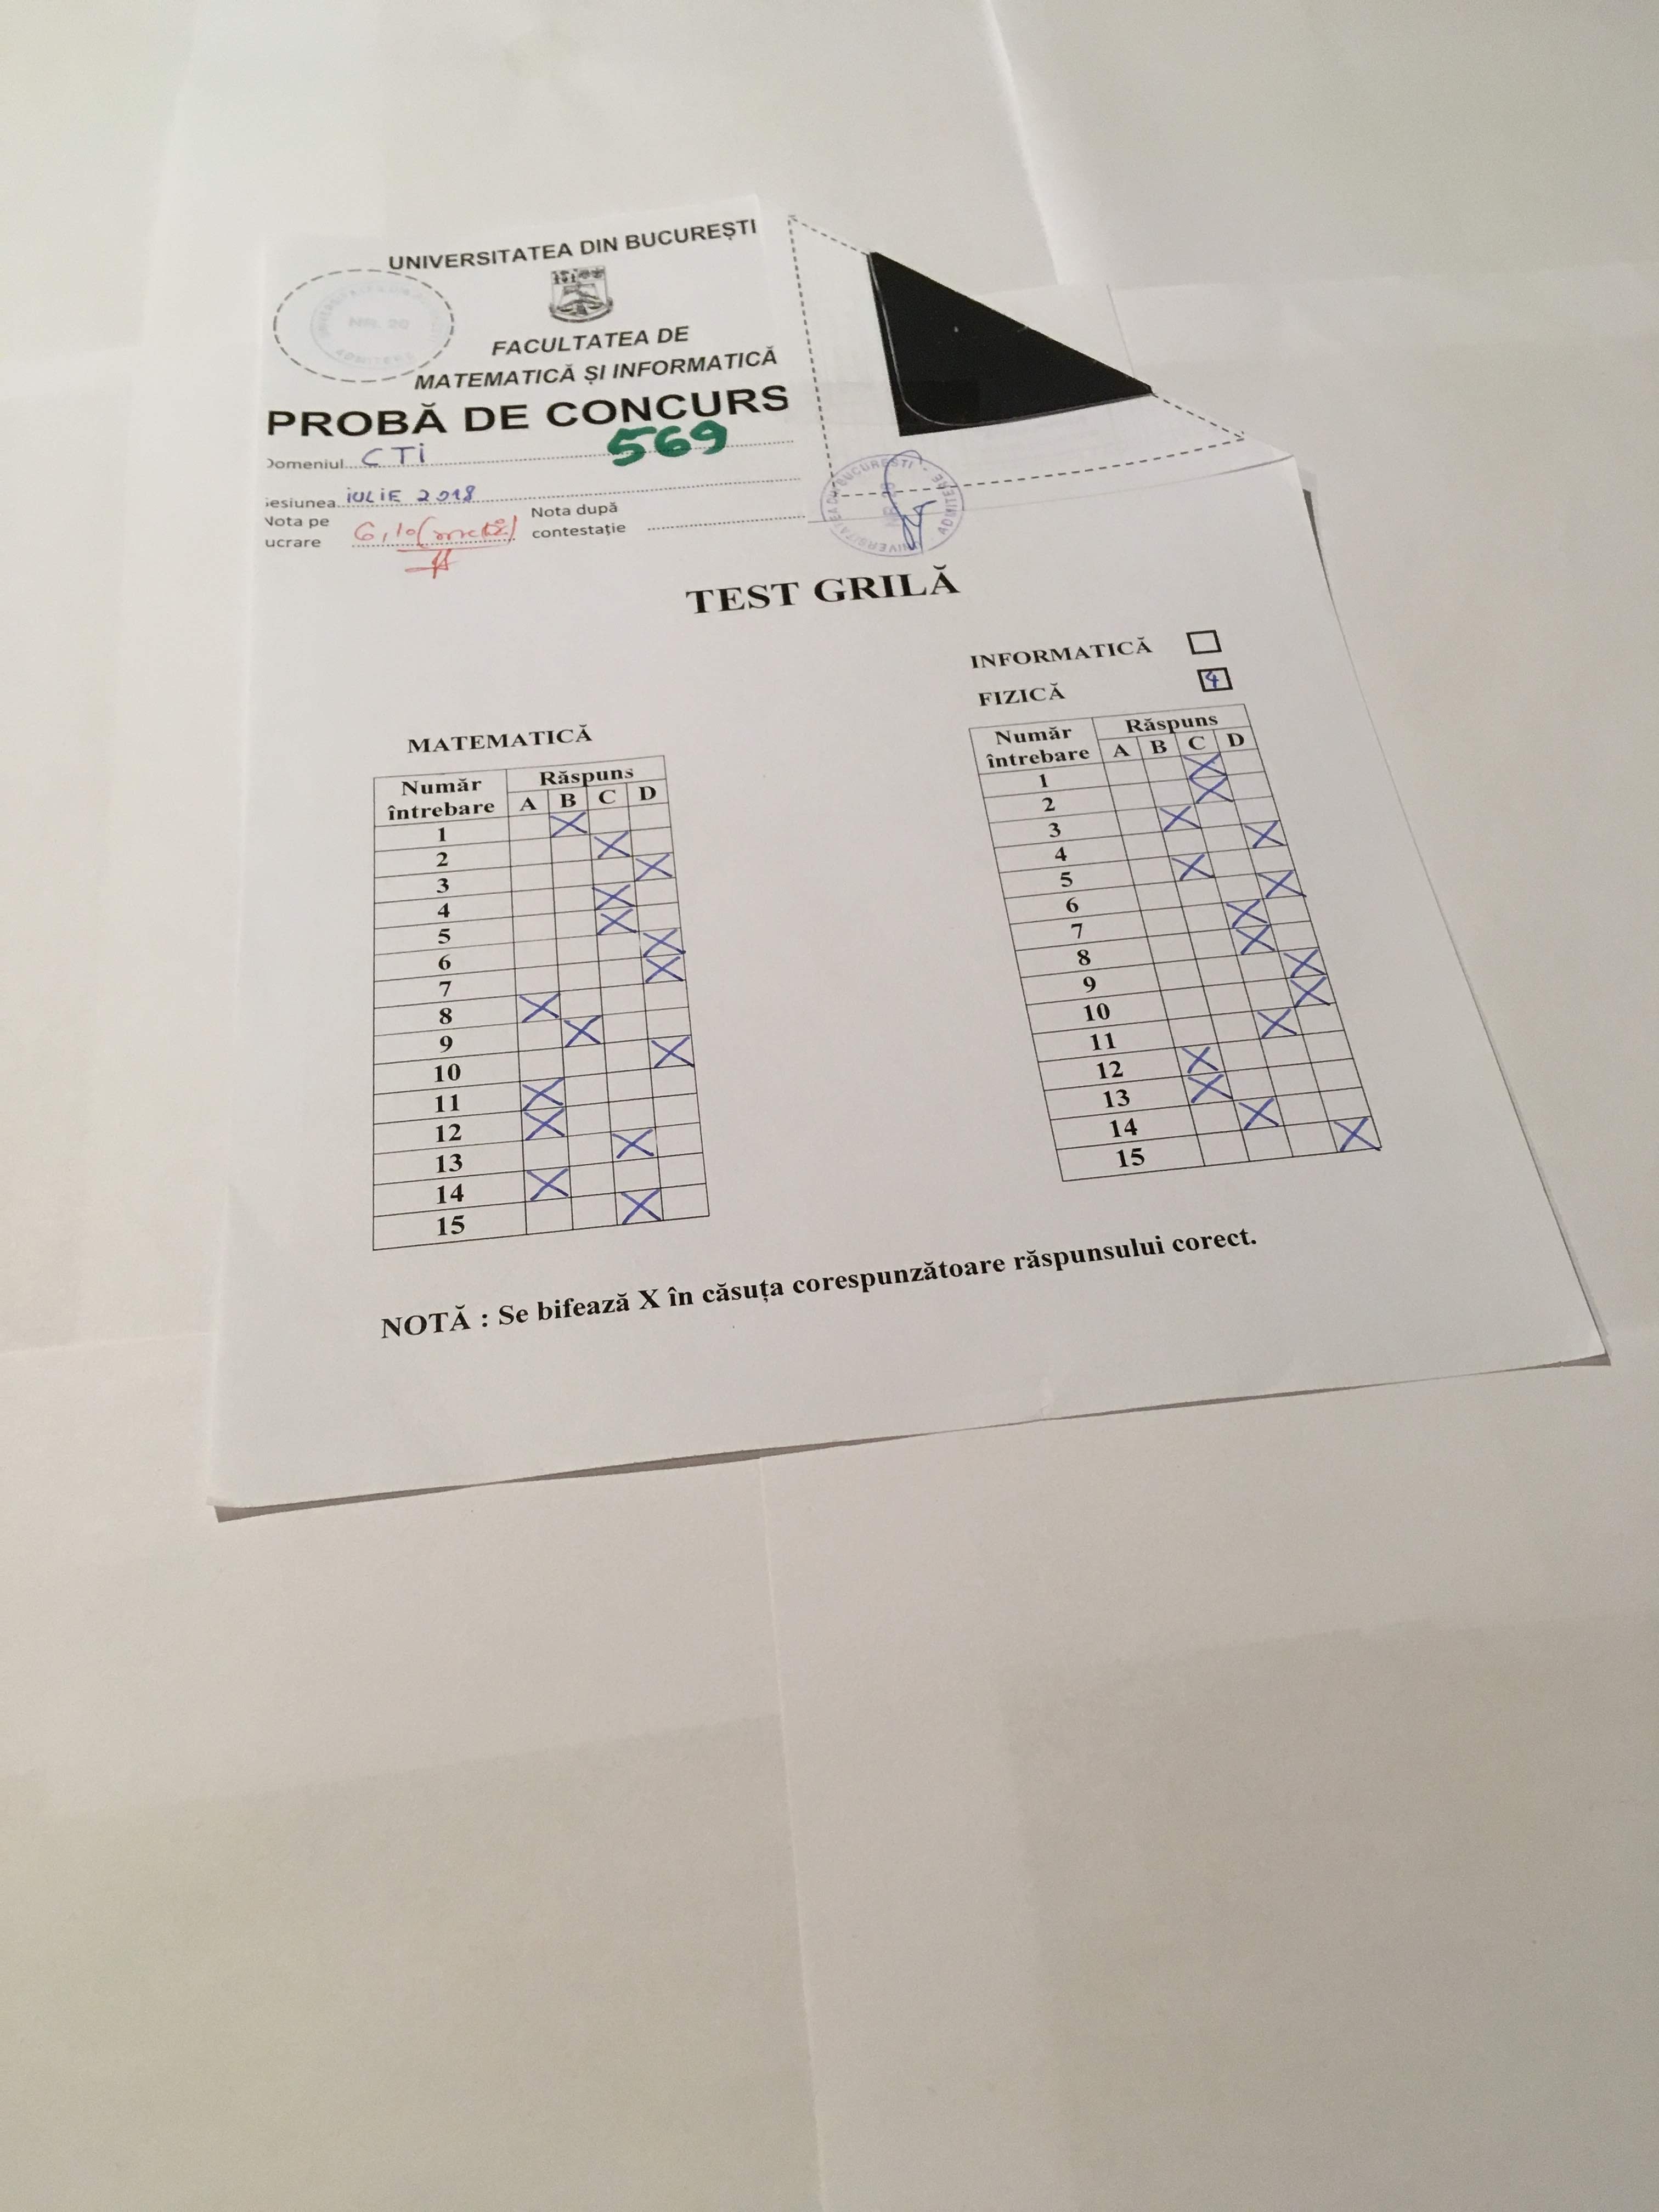 UNIVERSITATEA DIN BUCUREȘTI
NR. 20
FACULTATEA DE
MATEMATICĂ ȘI INFORMATICĂ
PROBĂ DE CONCURS
569
Domeniul CTi
esiunea iULiE 2018
Nota pe
ucrare 6,10
Nota după
contestație
UNIVERSITATEA DIN BUCUREȘTI - ADMITERE
TEST GRILĂ
INFORMATICĂ
FIZICĂ 4
MATEMATICĂ
Număr
întrebare
Răspuns
A B C D
1 X
2 X
3 X
4 X
5 X
6 X
7 X
8 X
9 X
10 X
11 X
12 X
13 X
14 X
15 X
Număr
întrebare
Răspuns
A B C D
1 X
2 X
3 X
4 X
5 X
6 X
7 X
8 X
9 X
10 X
11 X
12 X
13 X
14 X
15 X
NOTĂ : Se bifează X în căsuța corespunzătoare răspunsului corect.